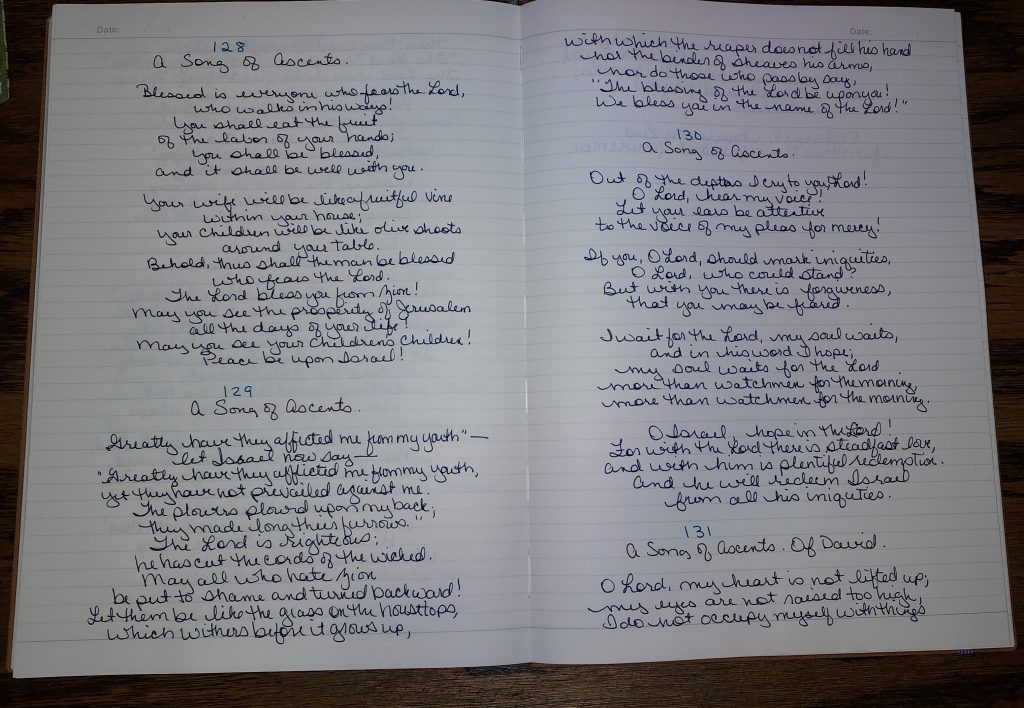 Date:
128
A Song of Ascents.
Blessed is everyone who fears the Lord,
who walks in his ways!
You shall eat the fruit
of the labor of your hands;
you shall be blessed,
and it shall be well with you.
Your wife will be like a fruitful vine
within your house;
your children will be like olive shoots
around your table.
Behold, thus shall the man be blessed
who fears the Lord.
The Lord bless you from Zion!
May you see the prosperity of Jerusalem
all the days of your life!
May you see your childrens children!
Peace be upon Israel!
129
A Song of Ascents.
Greatly have they afficted me from my youth"—
let Israel now say—
"Greatly have they afflicted me from my youth,
yet they have not prevailed against me.
The plowers plowd upon my back;
they made long their furrows."
The Lord is righteous;
he has cut the cords of the wicked.
May all who hate Zion
be put to shame and turned backward!
Let them be like the grass on the housetops,
which withers before it grows up,
Date:
with which the reaper does not fill his hand
nor the binder of sheaves his arms,
nor do those who pass by say,
"The blessing of the Lord be upon you!
We bless you in the name of the Lord!"
130
A Song of Ascents.
Out of the depths I cry to you, Lord!
O Lord, hear my voice!
Let your ears be attentive
to the voice of my pleas for mercy!
If you, O Lord, should mark iniquities,
O Lord, who could stand?
But with you there is forgiveness,
that you may be feared.
I wait for the Lord, my soul waits,
and in his word I hope;
my soul waits for the Lord
more than watchmen for the morning,
more than watchmen for the morning.
O Israel hope in the Lord!
For with the Lord there is steadfast love,
and with him is plentiful redemption.
And he will redeem Israel
from all his iniquties.
131
A Song of Ascents. Of David.
O Lord, my heart is not lifted up;
my eyes are not raised too high,
I do not occupy myself with things